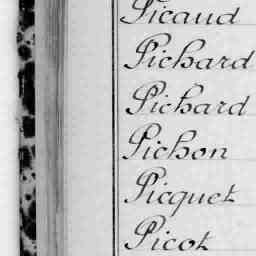 Picaud
Pichard
Pichard
Pichon
Picquet
Picot